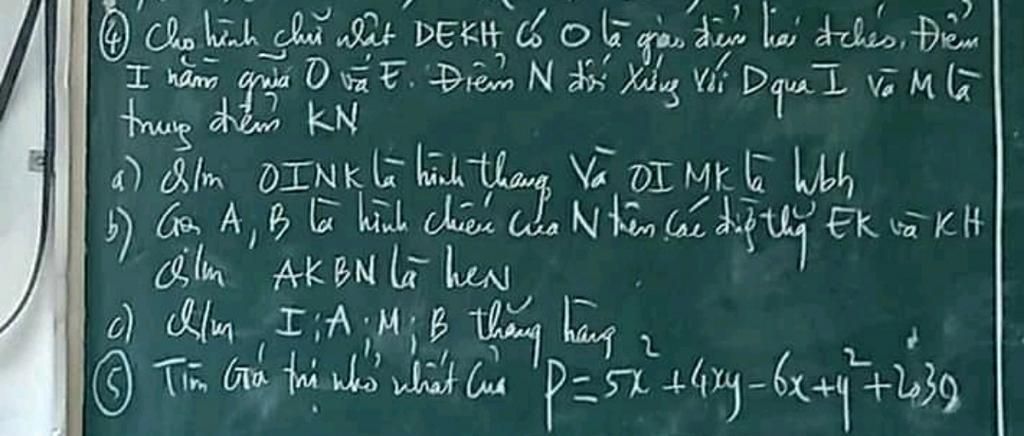 ④ Cho hình chữ nhật DEKH có O là giao điểm hai đ chéo. Điểm
I nằm giữa O và E. Điểm N đối xứng với D qua I và M là
trung điểm KN
a) C/m OINK là hình thang và OIMK là hbh
b) Gọi A, B là hình chiếu của N trên các đg thg EK và KH
C/m AKBN là hcn
c) C/m I; A; M; B thẳng hàng
⑤ Tìm Giá trị nhỏ nhất của P = 5x² + 4xy - 6x + y² + 2030